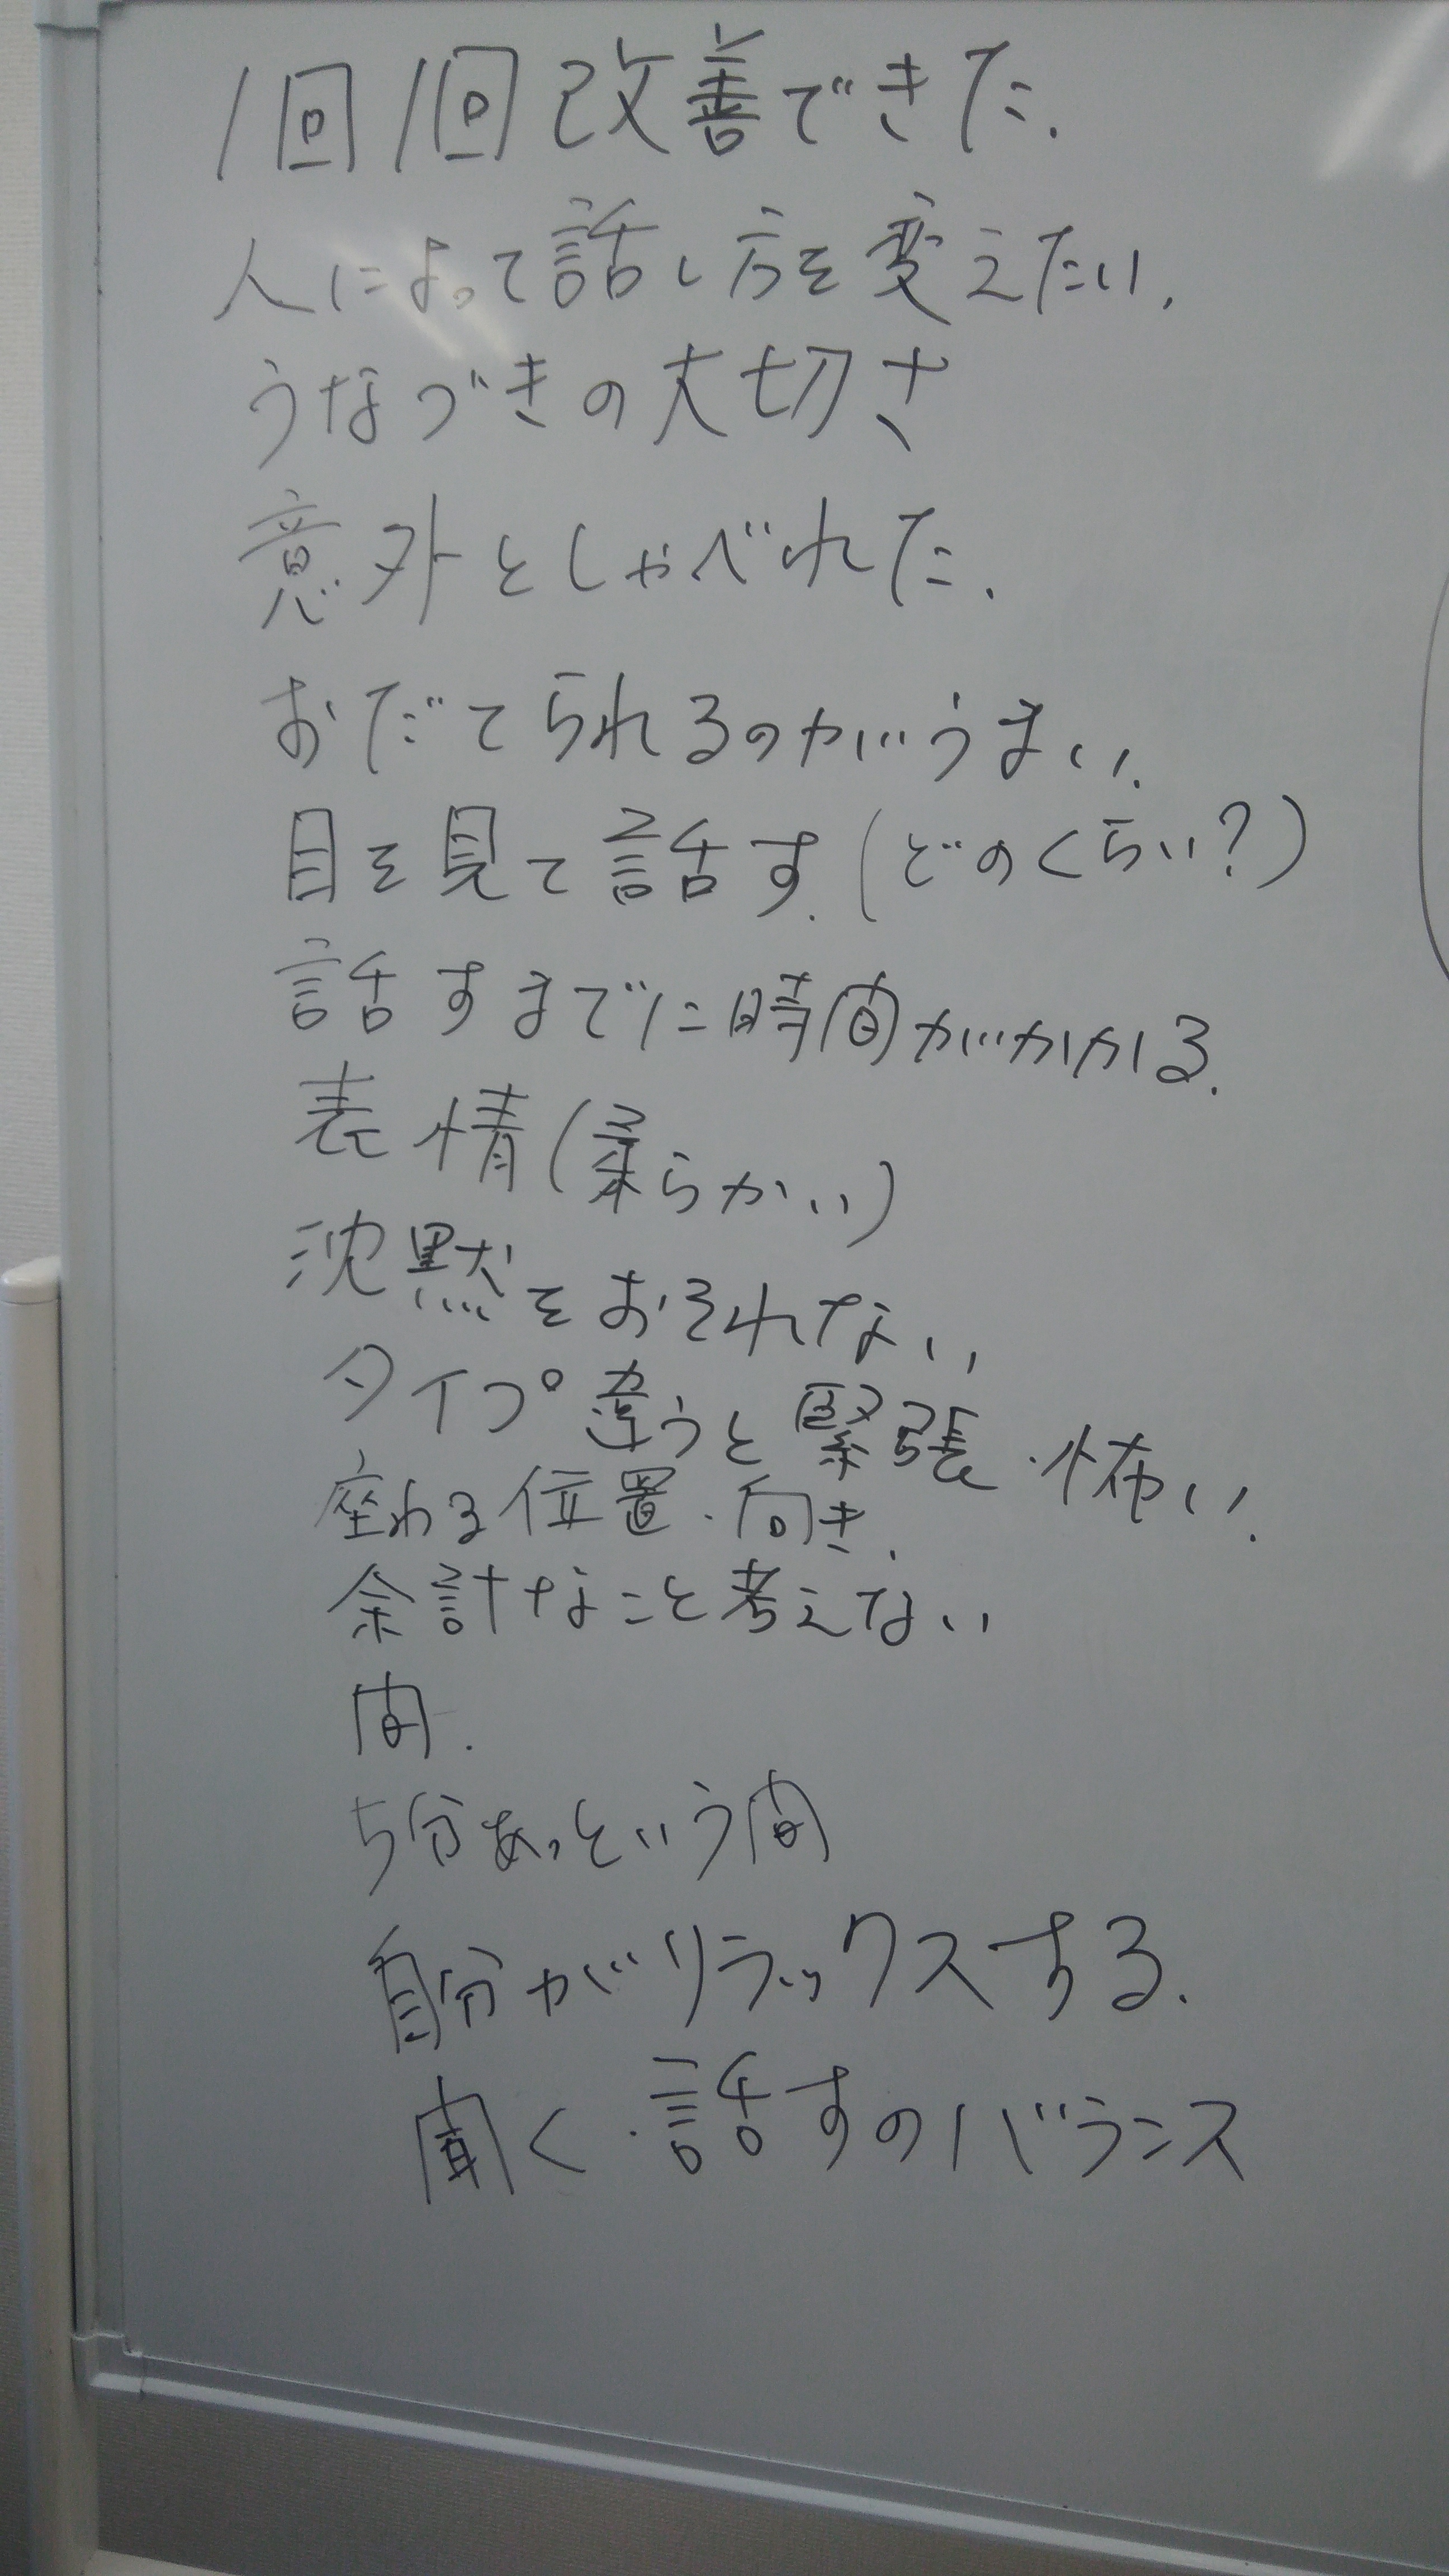 1回1回改善できた.
人によって話し方を変えたい.
うなづきの大切さ
意外としゃべれた.
おだてられるのがうまい.
目を見て話す.(どのくらい?)
話すまでに時間がかかる.
表情(柔らかい)
沈黙をおそれない
タイプ違うと緊張・怖い.
座わる位置・向き.
余計なこと考えない
間.
5分あっという間
自分がリラックスする.
聞く・話すのバランス